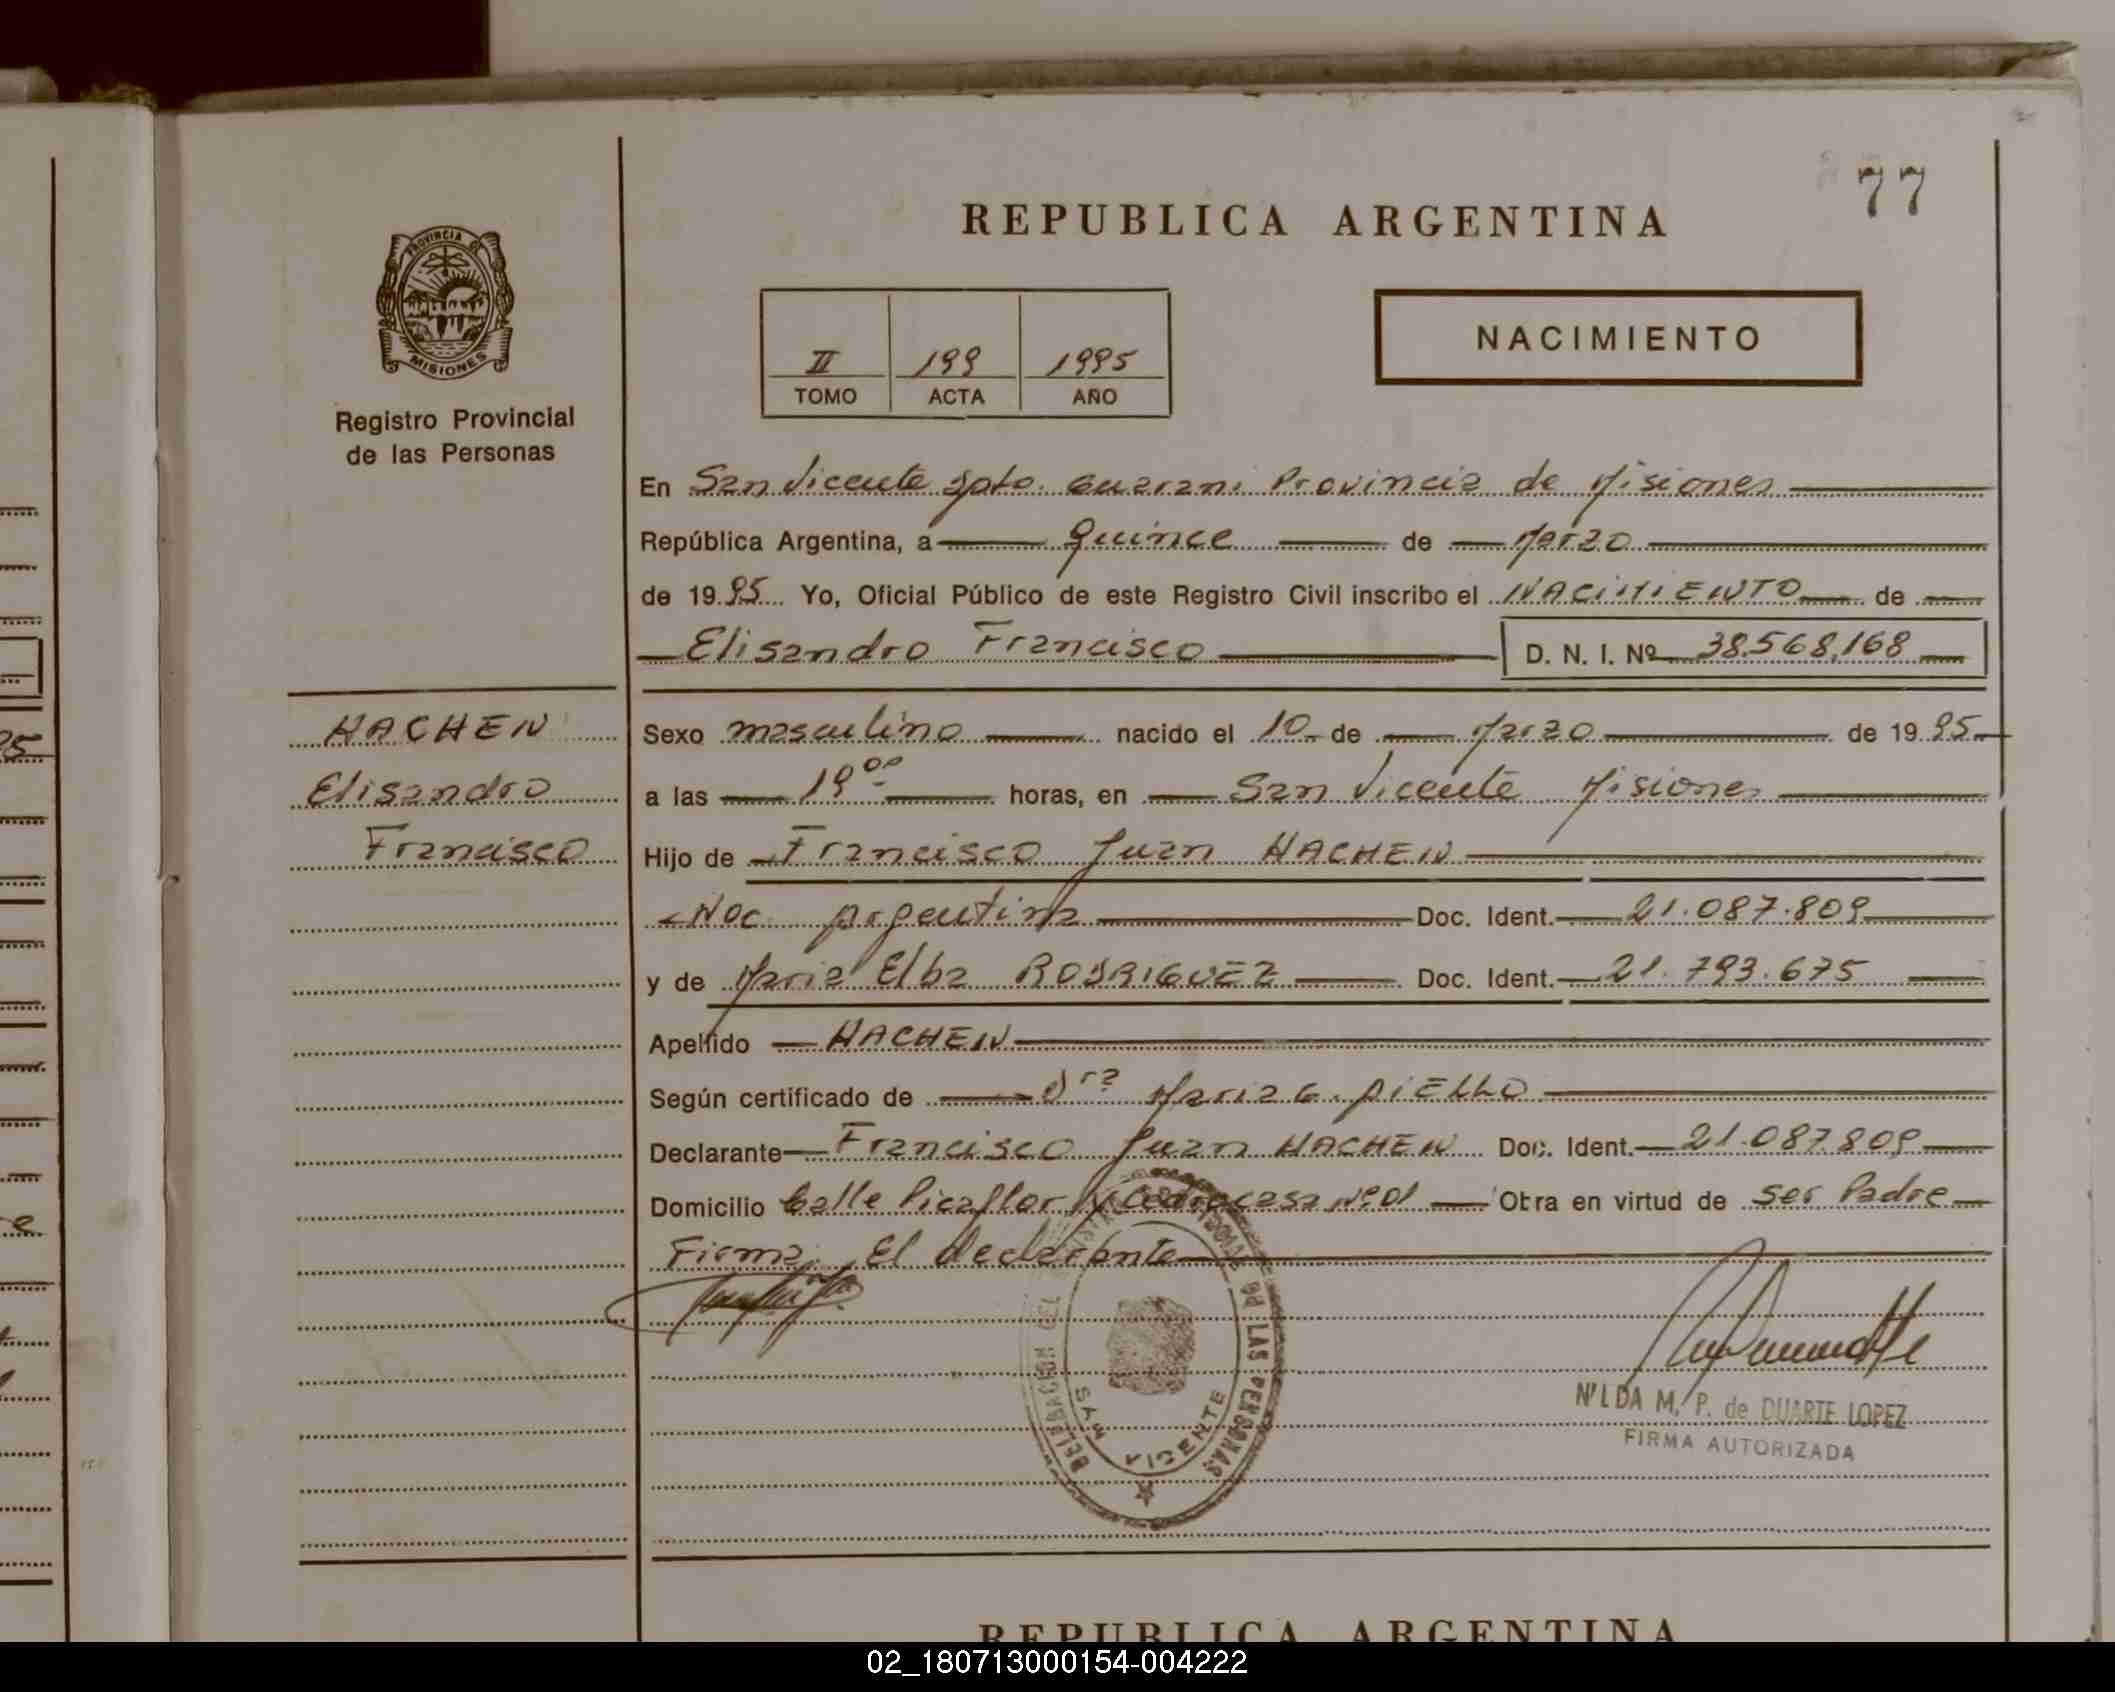 77
REPUBLICA ARGENTINA
PROVINCIA DE
MISIONES
Registro Provincial
de las Personas
II 199 1995
TOMO ACTA AÑO
NACIMIENTO
En San Vicente Dpto. Guarani Provincia de Misiones
República Argentina, a Quince de Marzo
de 1995 Yo, Oficial Público de este Registro Civil inscribo el NACIMIENTO de
Elisandro Francisco D. N. I. Nº 38.568.168
HACHEN
Elisandro
Francisco
Sexo masculino nacido el 10 de Marzo de 1995
a las 19⁰⁰ horas, en San Vicente Misiones
Hijo de Francisco Juan HACHEN
Nac. Argentina Doc. Ident. 21.087.809
y de Maria Elba RODRIGUEZ Doc. Ident. 21.793.675
Apellido HACHEN
Según certificado de Dra Maria G. AIELLO
Declarante Francisco Juan HACHEN Doc. Ident. 21.087.809
Domicilio Calle Picaflor y Cedro casa Nº 01 Obra en virtud de ser Padre
Firma: El declarante
DE LAS PERSONAS
DELEGACION
SAN VICENTE
NILDA M. P. de DUARTE LOPEZ
FIRMA AUTORIZADA
REPUBLICA ARGENTINA
02_180713000154-004222